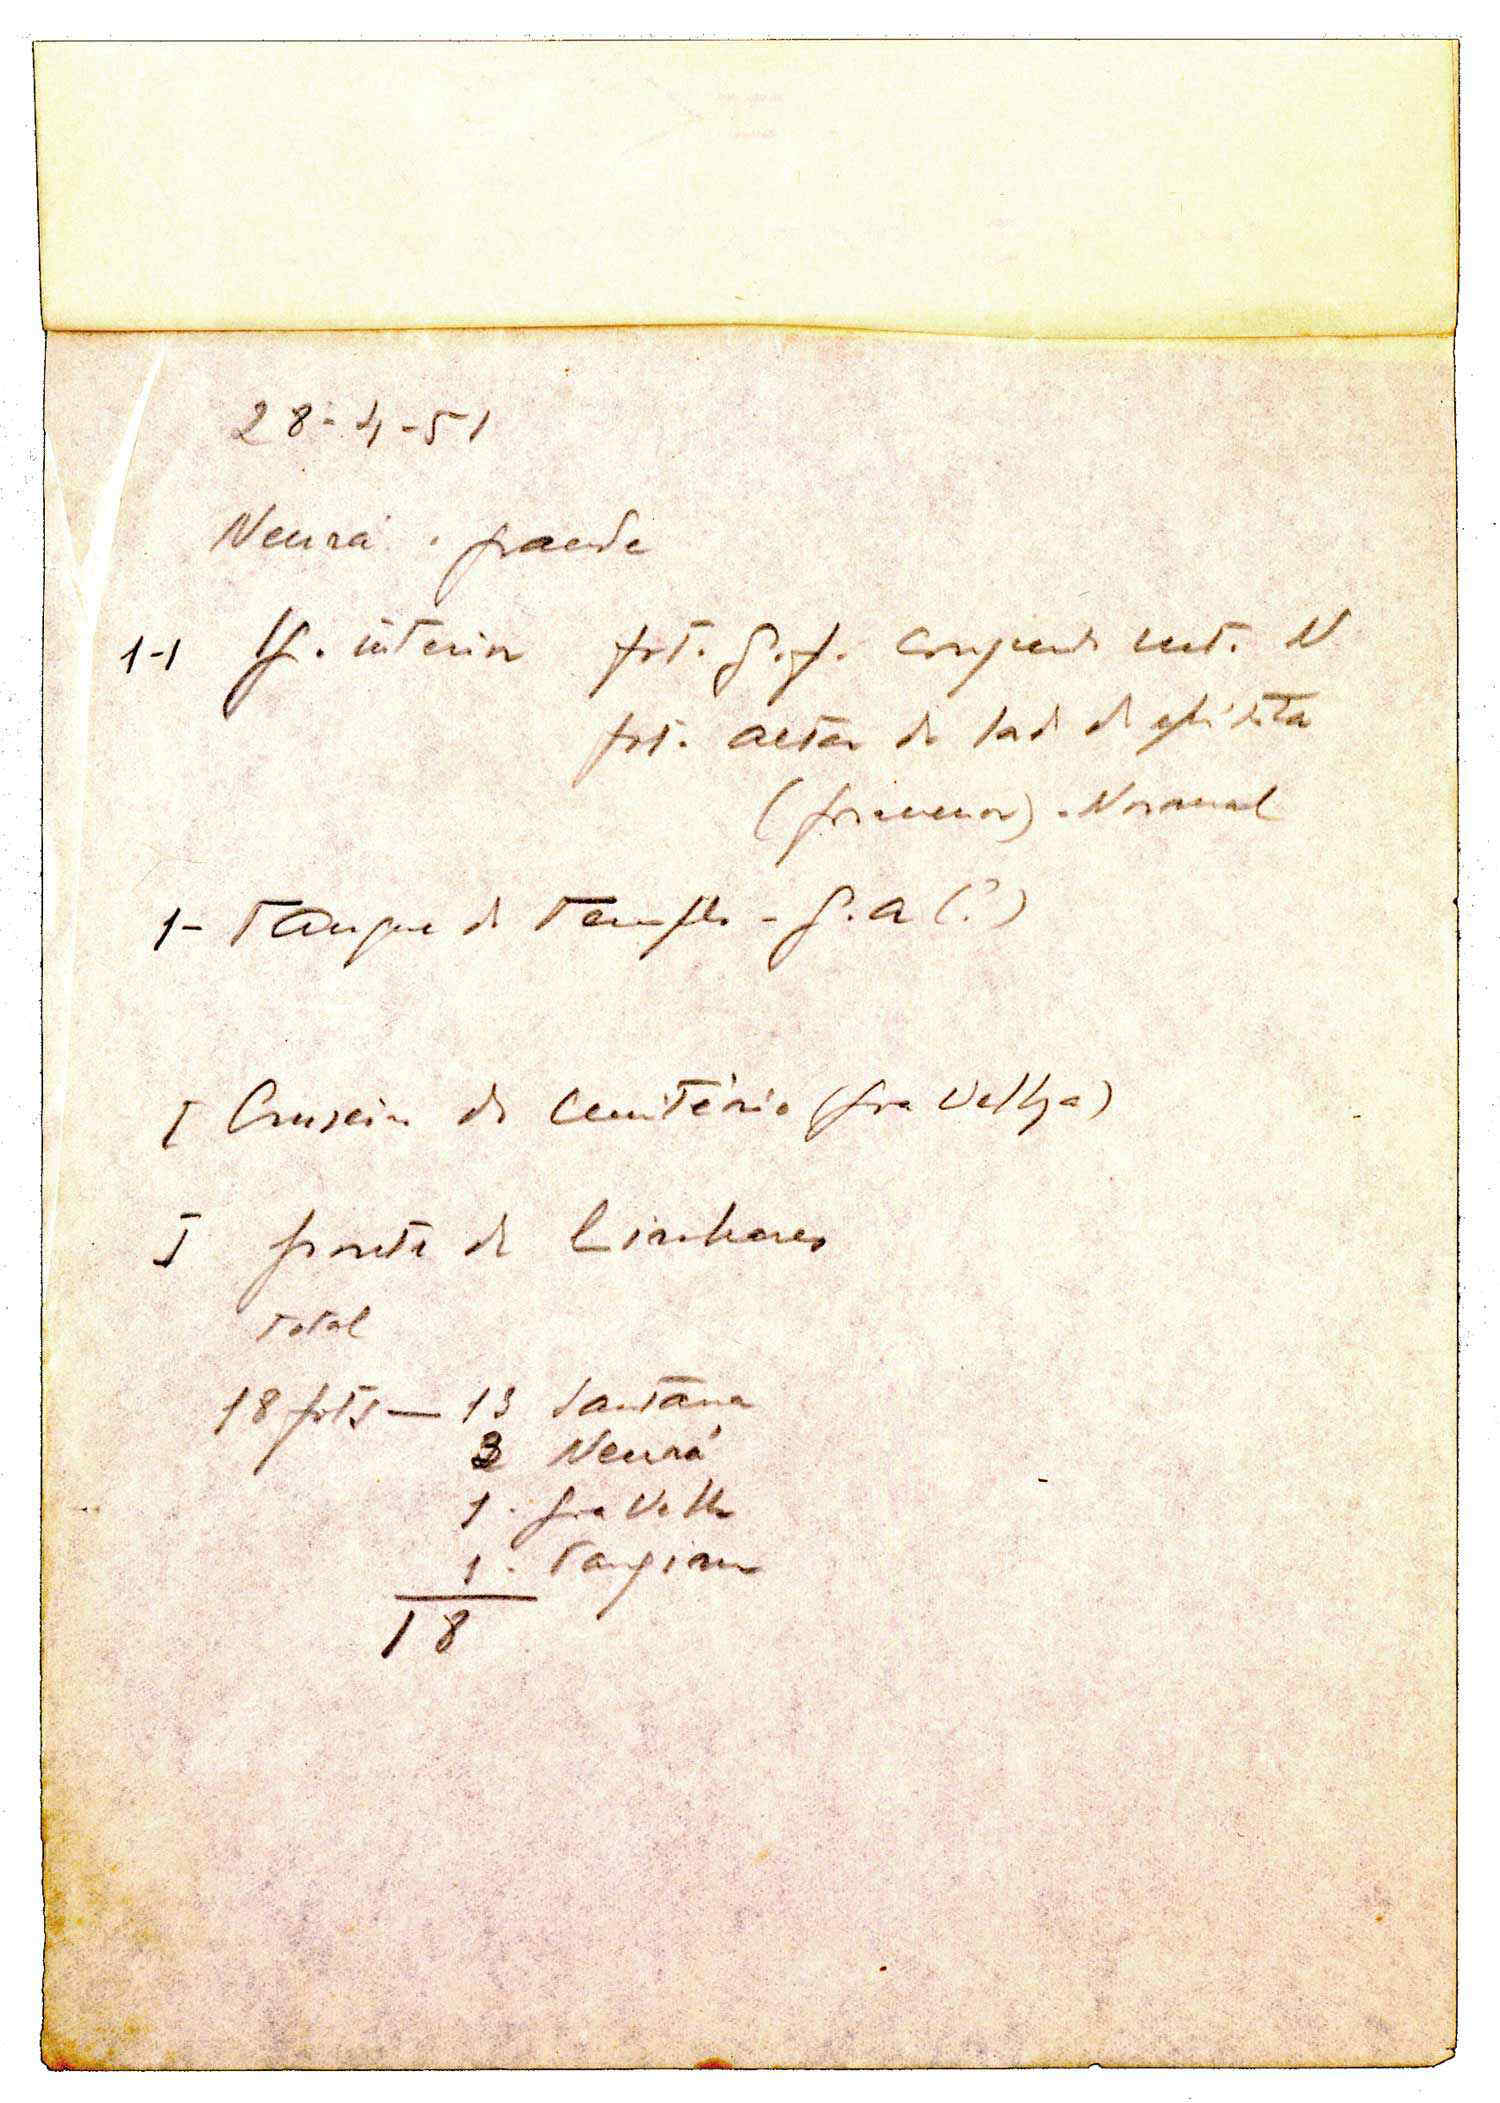 28-4-51
Neurá . grande
1-1 Ig. interior fot. g.f. conjunto vert. N
fot. altar do lado da epístola
(pormenor) - Normal
1- Tanque do Templo - g.a (?)
1 Cruzeiro do Cemitério (Goa Velha)
1 fonte de Linhares
total
18 fots — 13 Santana
3 Neurá
1 . Goa Velha
1 .
18